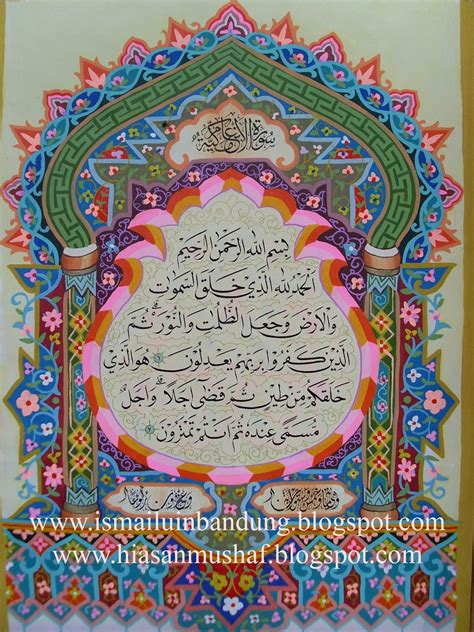 سورة الانعام مكية
بِسْمِ اللهِ الرَّحْمٰنِ الرَّحِيْمِ
اَلْحَمْدُ لِلّٰهِ الَّذِيْ خَلَقَ السَّمٰوٰتِ
وَالْاَرْضَ وَجَعَلَ الظُّلُمٰتِ وَالنُّوْرَ ۗ ثُمَّ
الَّذِيْنَ كَفَرُوْا بِرَبِّهِمْ يَعْدِلُوْنَ ١ هُوَالَّذِيْ
خَلَقَكُمْ مِّنْ طِيْنٍ ثُمَّ قَضٰٓى اَجَلًا ۗ وَاَجَلٌ
مُّسَمًّى عِنْدَهٗ ثُمَّ اَنْتُمْ تَمْتَرُوْنَ ٢
www.ismailuinbandung.blogspot.com
www.hiasanmushaf.blogspot.com